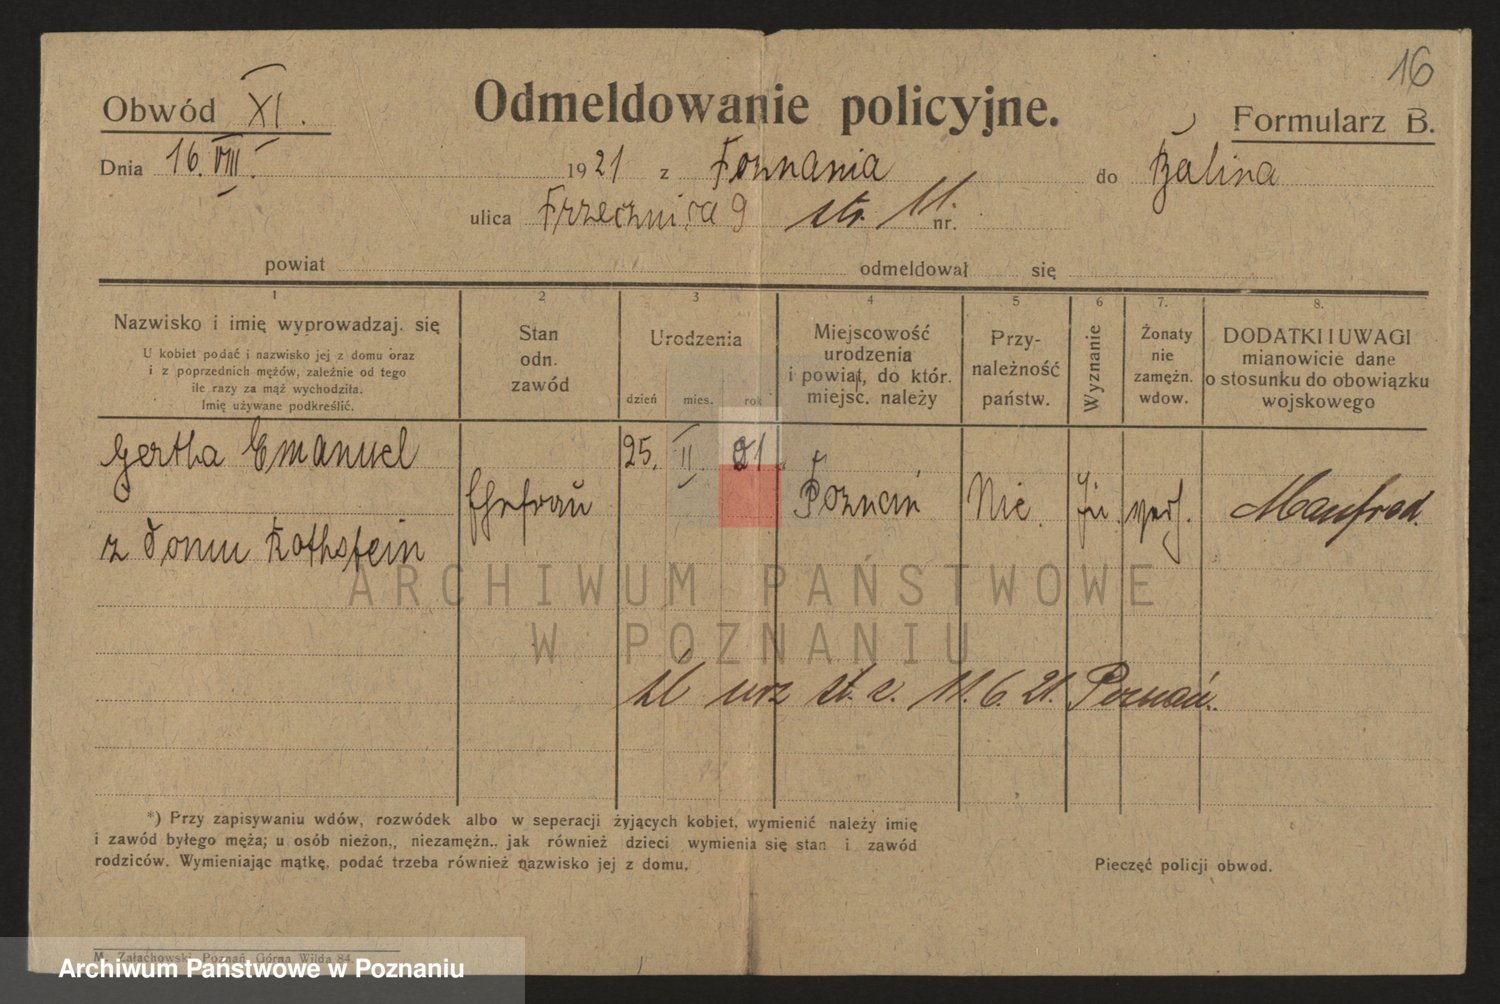 16
Obwód XI.
Odmeldowanie policyjne.
Formularz B.
Dnia 16. VIII. 1921 z Poznania do
ulica 9 str. 11. nr.
powiat odmeldował się
1 2 3 4 5 6 7. 8.
Nazwisko i imię wyprowadzaj. się
U kobiet podać i nazwisko jej z domu oraz
i z poprzednich mężów, zależnie od tego
ile razy za mąż wychodziła.
Imię używane podkreślić.
Stan
odn.
zawód
Urodzenia
dzień mies. rok
Miejscowość
urodzenia
i powiat, do któr.
miejsc. należy
Przy-
należność
państw.
Wyznanie
Żonaty
nie
zamężn.
wdow.
DODATKI I UWAGI
mianowicie dane
o stosunku do obowiązku
wojskowego
Gertha Emanuel
z domu Rothstein
Ehefrau
25. II. 21
Poznań
Nie.
Manfred.
11. 6. 21. Poznań.
ARCHIWUM PAŃSTWOWE
W POZNANIU
*) Przy zapisywaniu wdów, rozwódek albo w seperacji żyjących kobiet, wymienić należy imię
i zawód byłego męża; u osób nieżon,, niezamężn.. jak również dzieci wymienia się stan i zawód
rodziców. Wymieniając mątkę, podać trzeba również nazwisko jej z domu.
Pieczęć policji obwod.
M. Załachowski, Poznań, Górna Wilda 84.
Archiwum Państwowe w Poznaniu